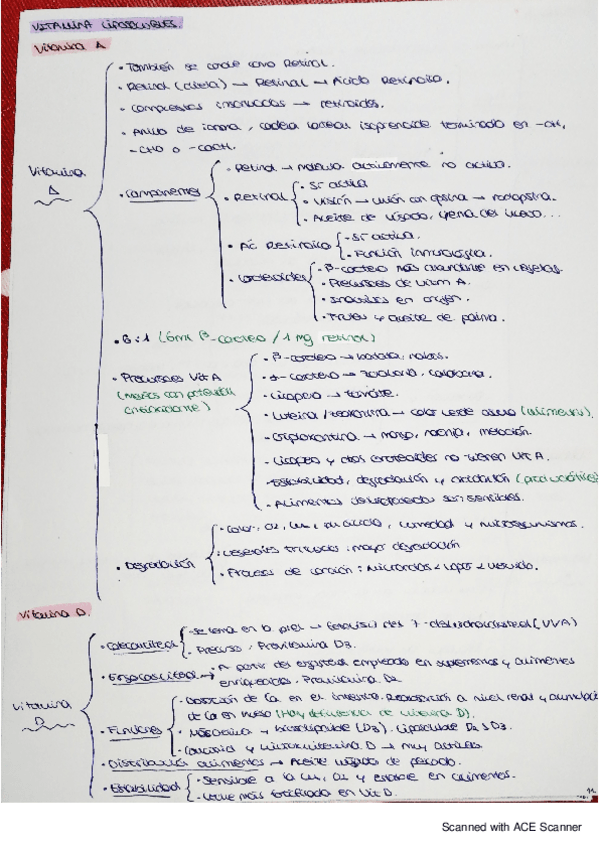 VITAMINA LIPOSOLUBLES.
Vitamina A
• También se conoce como Retinol.
• Retinol (dieta) → Retinal → Ácido Retinoico.
• Compuestos insaturados → retinoides.
• Anillo de ionona, cadena lateral isoprenoide terminado en -OH,
-CHO o -COOH.
Vitamina A
• Componentes
• Retinol → Molécula activamente no activa.
• Retinal
• Sí activa
• Visión → unión con opsina → rodopsina.
• Aceite de hígado, yema del huevo...
• Ác Retinoico
- Sí activa.
- Función inmunológica.
• Carotenoides
- β-caroteno más abundante en vegetales.
• Precursores de vitam A.
• en origen.
• Frutas y aceite de palma.
• 6:1 (6mg β-caroteno / 1 mg retinol)
• Precursores Vit A
(muchos con potencial
antioxidante)
• β-caroteno →
• α-caroteno → zanahoria, calabaza.
• Licopeno → tomate.
• Luteína / zeaxantina → color verde
• Criptoxantina → mango, naranja, melocotón.
• Licopeno y otros carotenoides no tienen Vit A.
- Estabilidad, degradación y oxidación
• Alimentos son sensibles.
• Degradación
• Calor, O2, luz, pH ácido, humedad y microorganismos.
• Vegetales triturados: mayor degradación
• Proceso de cocción: Microondas < vapor < hervido.
Vitamina D.
Vitamina D
• Colecalciferol
- Se forma en la piel → del 7-dehidrocolesterol (UVA)
• Precursor, Provitamina D3.
• Ergocalciferol → • A partir del ergosterol empleado en suplementos y alimentos
enriquecidos. Provitamina D2
• Funciones
• Absorción de Ca en el intestino. Reabsorción a nivel renal y
de Ca en hueso (Hay deficiencia de vitamina D).
• (D3). Liposoluble D2 y D3.
• D → muy activas
• Distribución alimentos → Aceite hígado de pescado.
• Estabilidad
• Sensible a la luz, O2 y estable en alimentos.
- Leche más fortificada en Vit D.
11
Scanned with ACE Scanner